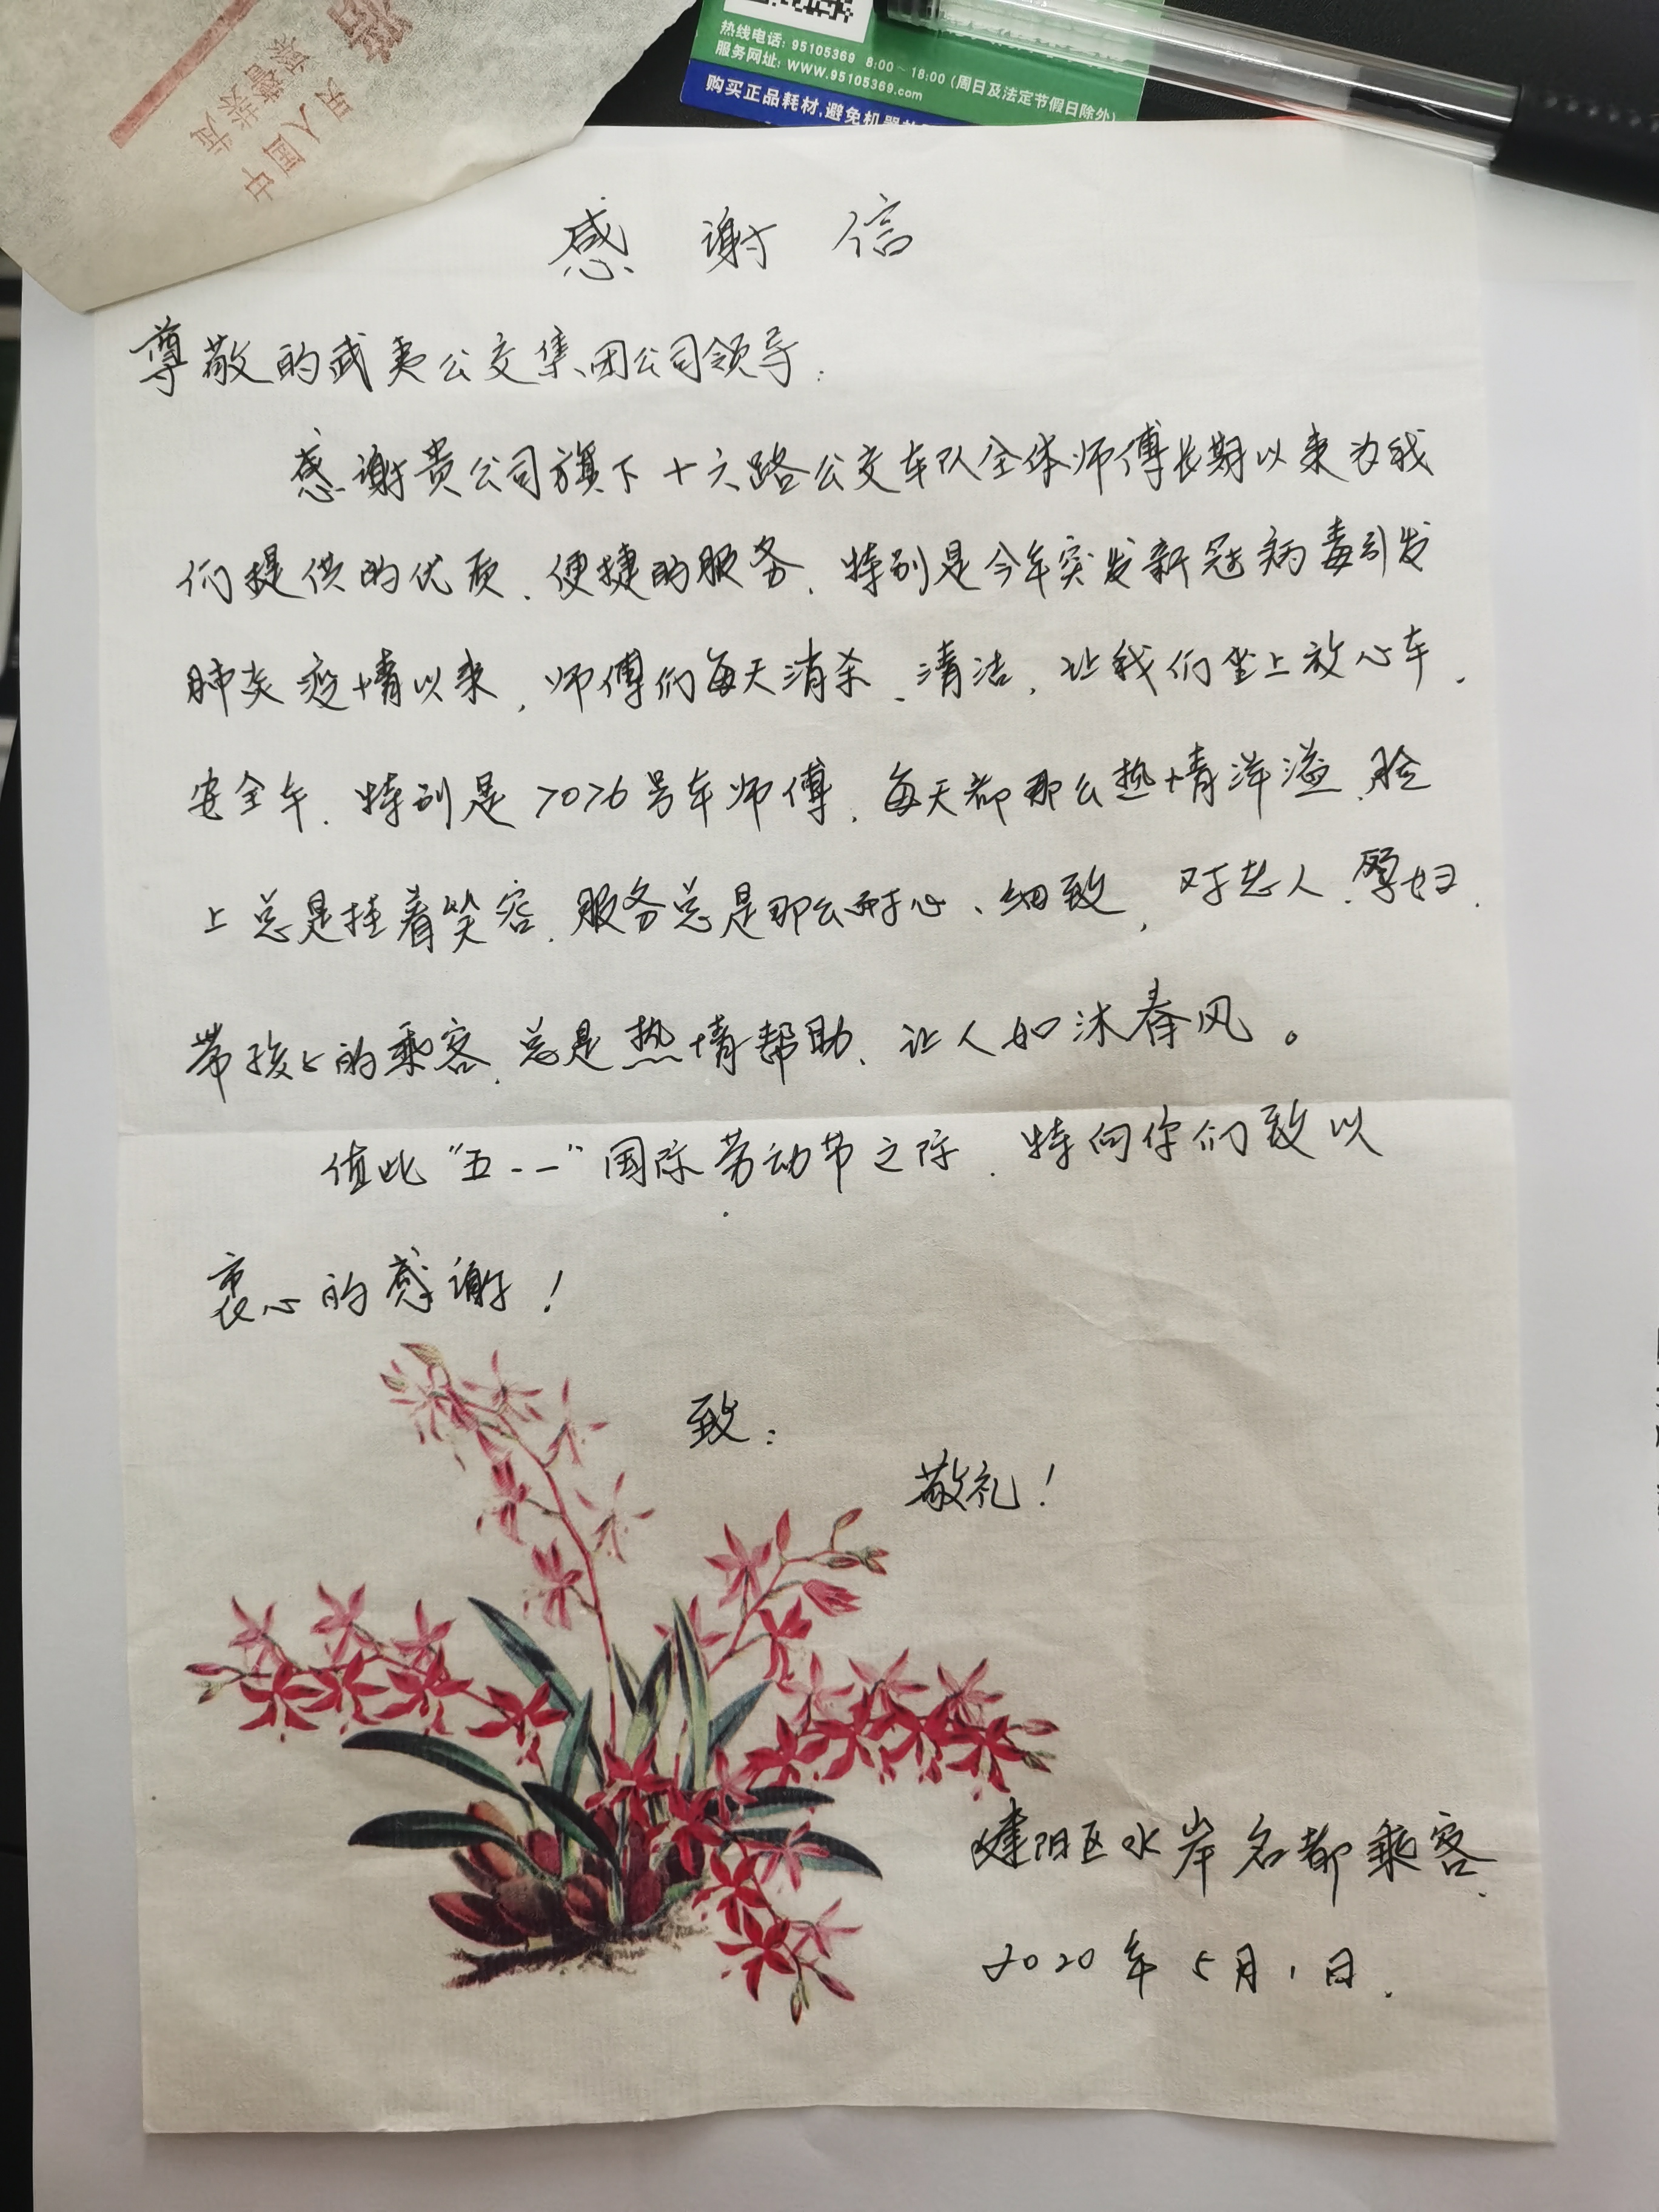 热线电话: 95105369 8:00～18:00 (周日及法定节假日除外)
服务网址: WWW.95105369.com
购买正品耗材,避免机器
中国人民
感谢信
尊敬的武夷公交集团公司领导：
感谢贵公司旗下十六路公交车队全体师傅长期以来为我
们提供的优质、便捷的服务，特别是今年突发新冠病毒引发
肺炎疫情以来，师傅们每天消杀、清洁，让我们坐上放心车、
安全车，特别是7076号车师傅，每天都那么热情洋溢，脸
上总是挂着笑容，服务总是那么耐心、细致，对老人、孕妇、
带孩子的乘客，总是热情帮助，让人如沐春风。
值此“五·一”国际劳动节之际，特向你们致以
衷心的感谢！
致：
敬礼！
建阳区水岸名都乘客
2020年5月1日.